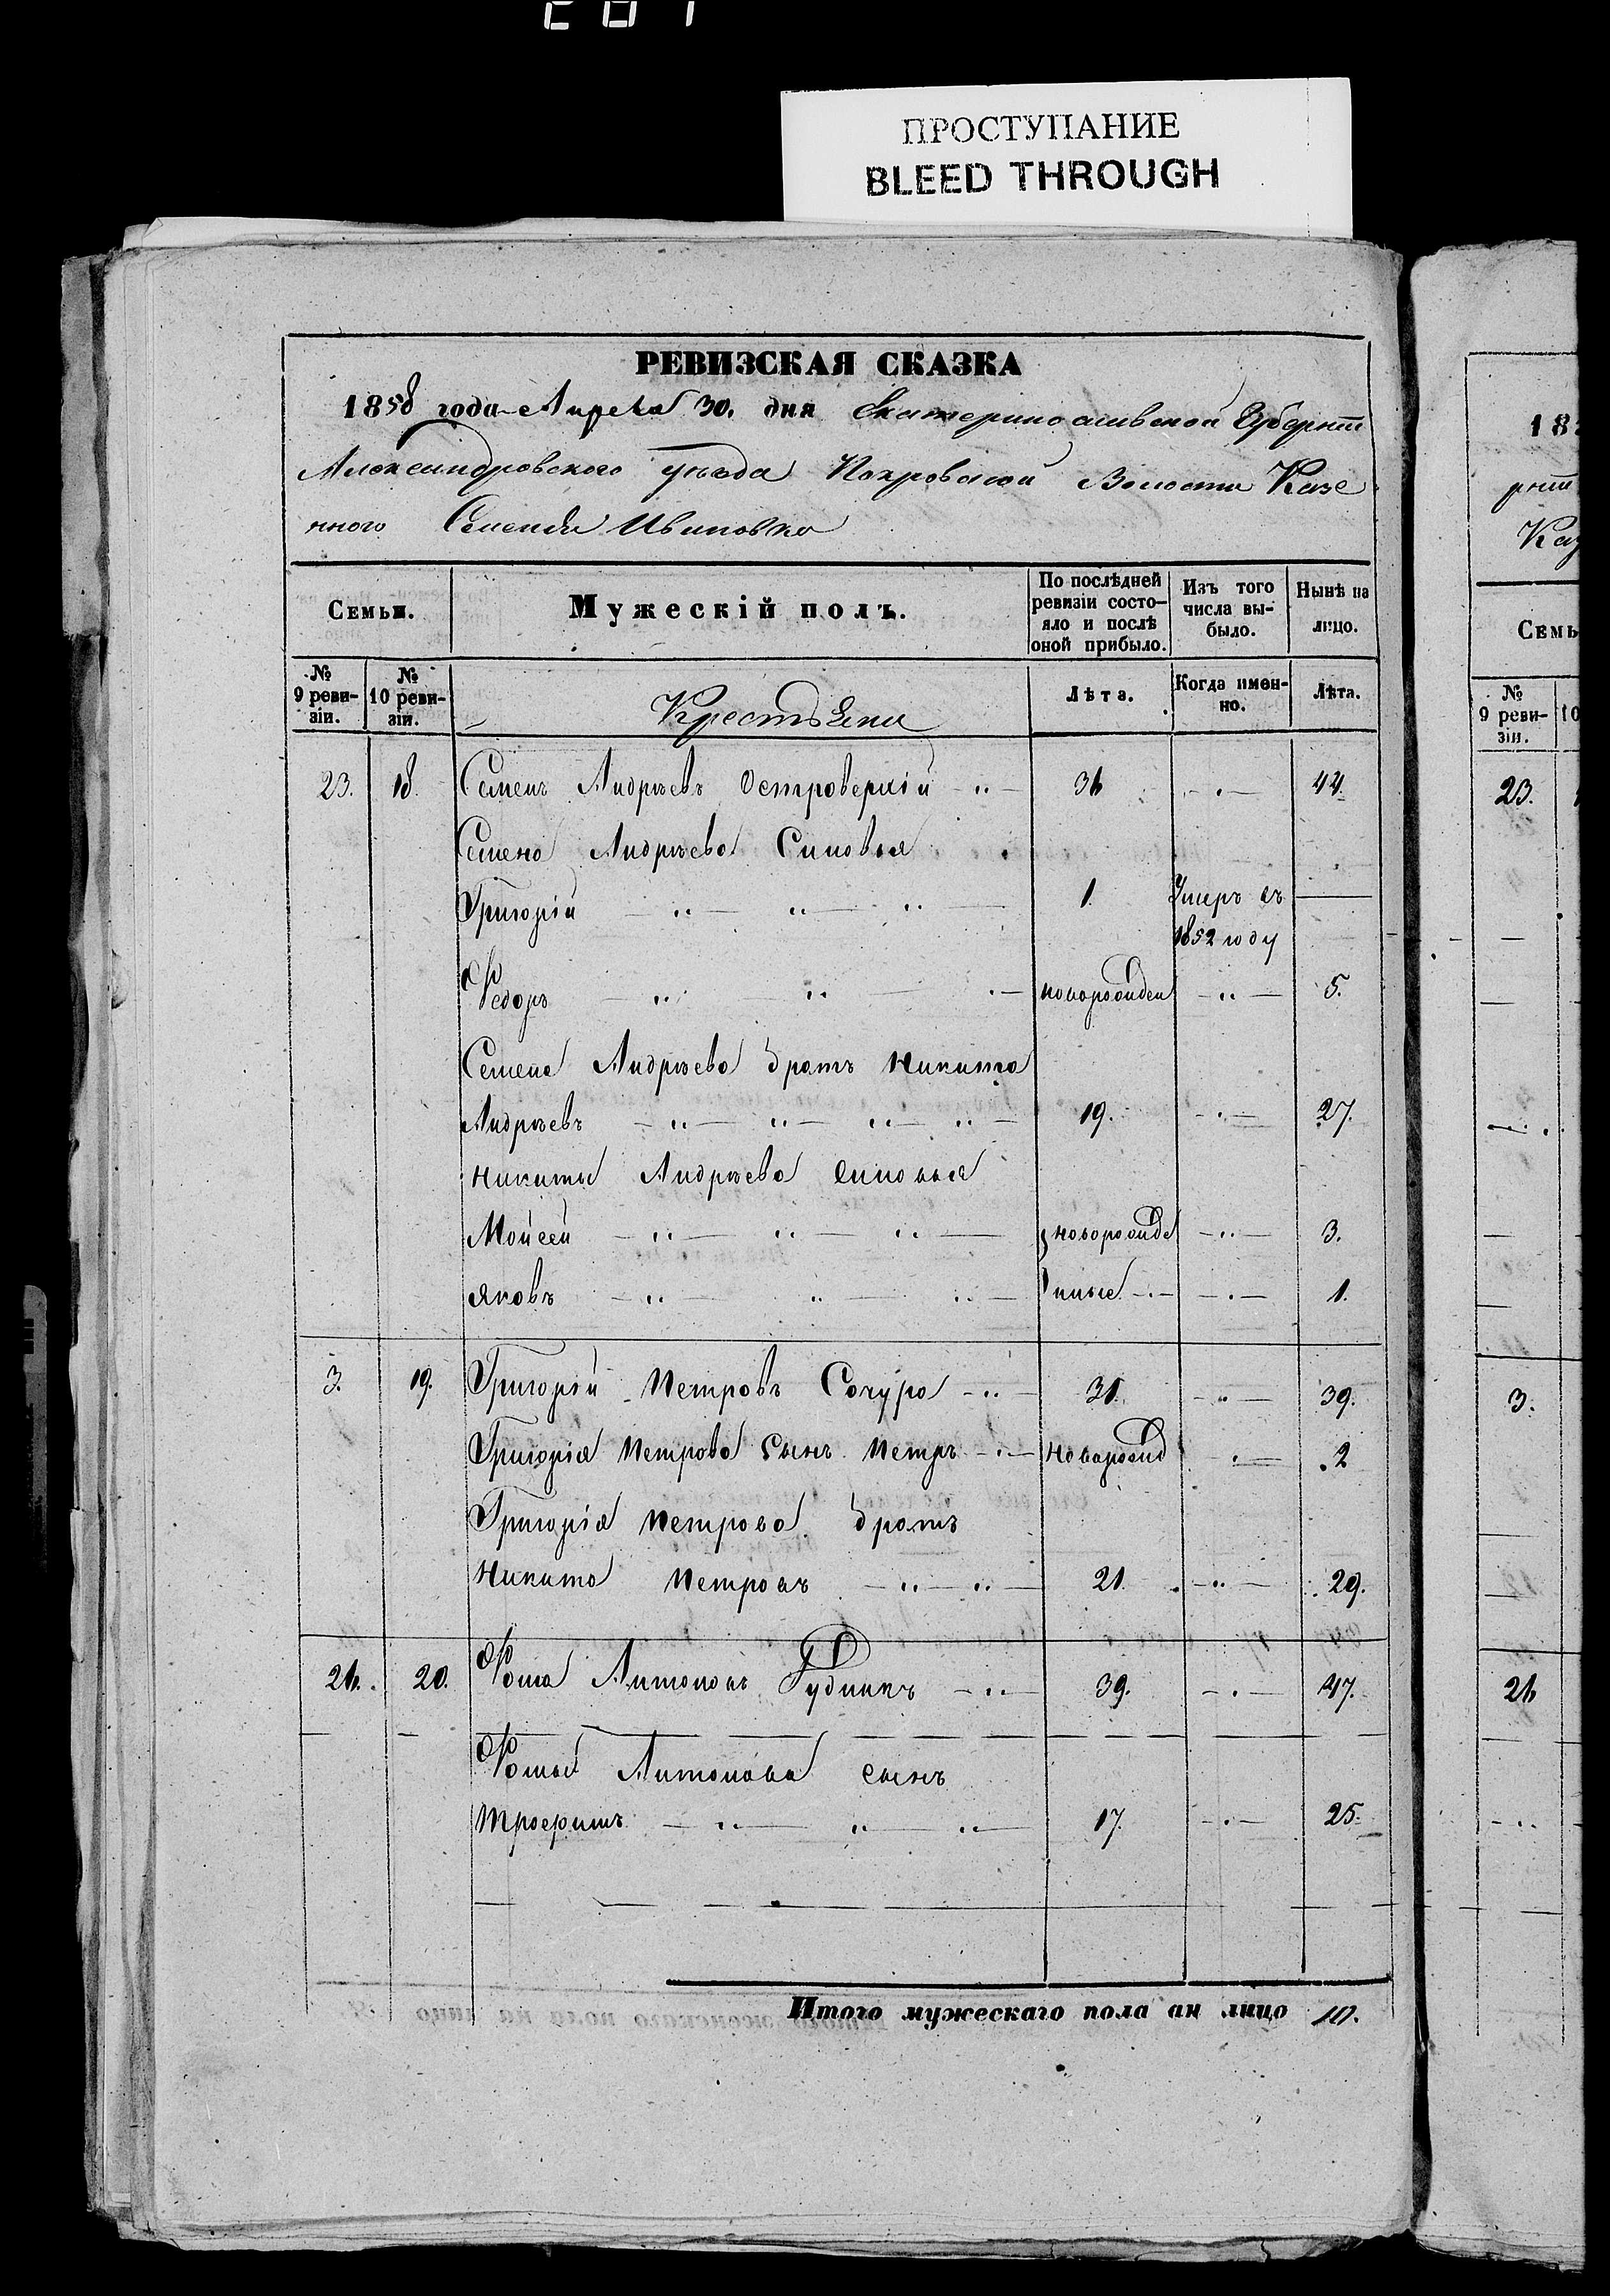 ПРОСТУПАНИЕ
BLEED THROUGH
РЕВИЗСКАЯ СКАЗКА
1858 года Апреля 30. дня Екатеринославской Губернiи
Александровского уезда Покровской Волости Казе
нного Селенiя Ивановка
Семьи. Мужескiй полъ. По послѣдней ревизiи состо-яло и послѣ оной прибыло. Изъ того числа вы-было. Нынѣ на лицо.
№ 9 реви-зiи. № 10 реви-зiи. Крестьяни Лѣта. Когда имен-но. Лѣта.
23. 18. Семенъ Андрѣевъ Островерхiй 36 44.
Семена Андрѣева Синовья
Григорiй 1. Умеръ въ
1852 году
Федоръ новорожден 5.
Семена Андрѣева братъ Никита
Андрѣевъ 19. 27.
Никиты Андрѣева синовья
Мойсей новорожде 3.
Яковъ нные 1.
3. 19. Григорiй Петровъ Сочура 31. 39.
Григорiя Петрова Сынъ Петръ Новорожд 2
Григорiя Петрова братъ
Никита Петровъ 21. 29.
26. 20. Фома Антоновъ Гудимъ 39. 47.
Фомы Антонова сынъ
Трофимъ 17. 25.
Итого мужескаго пола ан лицо 10.
18
рнiи
Каз
Семь
№ 9 реви-зiи. 10
23.
3.
26